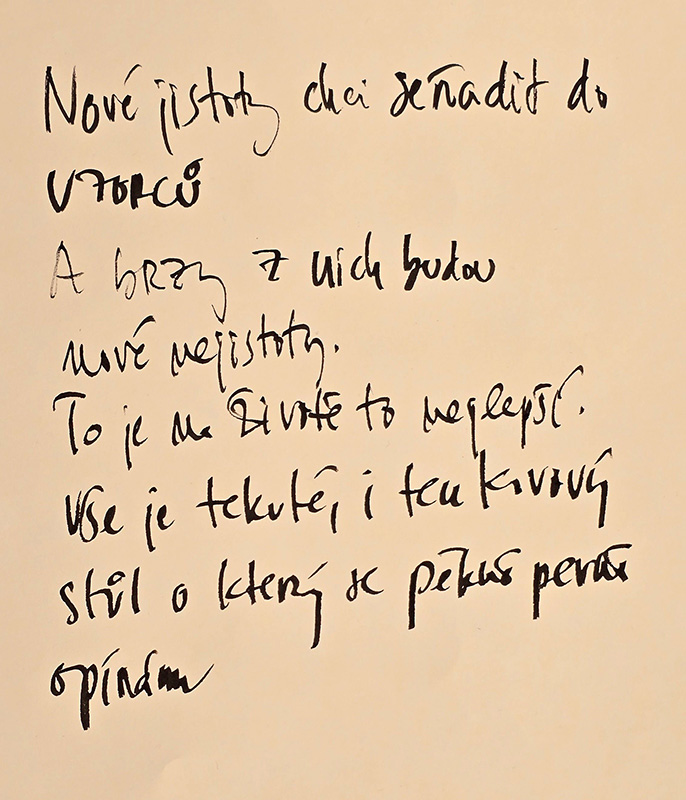 Nové jistoty chci seřadit do
vzorců
A brzy z nich budou
nové nejistoty.
To je na životě to nejlepší.
Vše je tekuté, i ten kovový
stůl o který se pěkně pevně
opírám